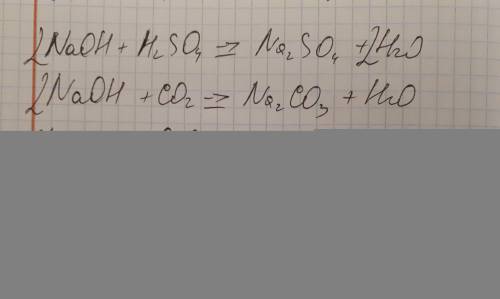 2NaOH + H₂SO₄ = Na₂SO₄ + 2H₂O
2NaOH + CO₂ = Na₂CO₃ + H₂O